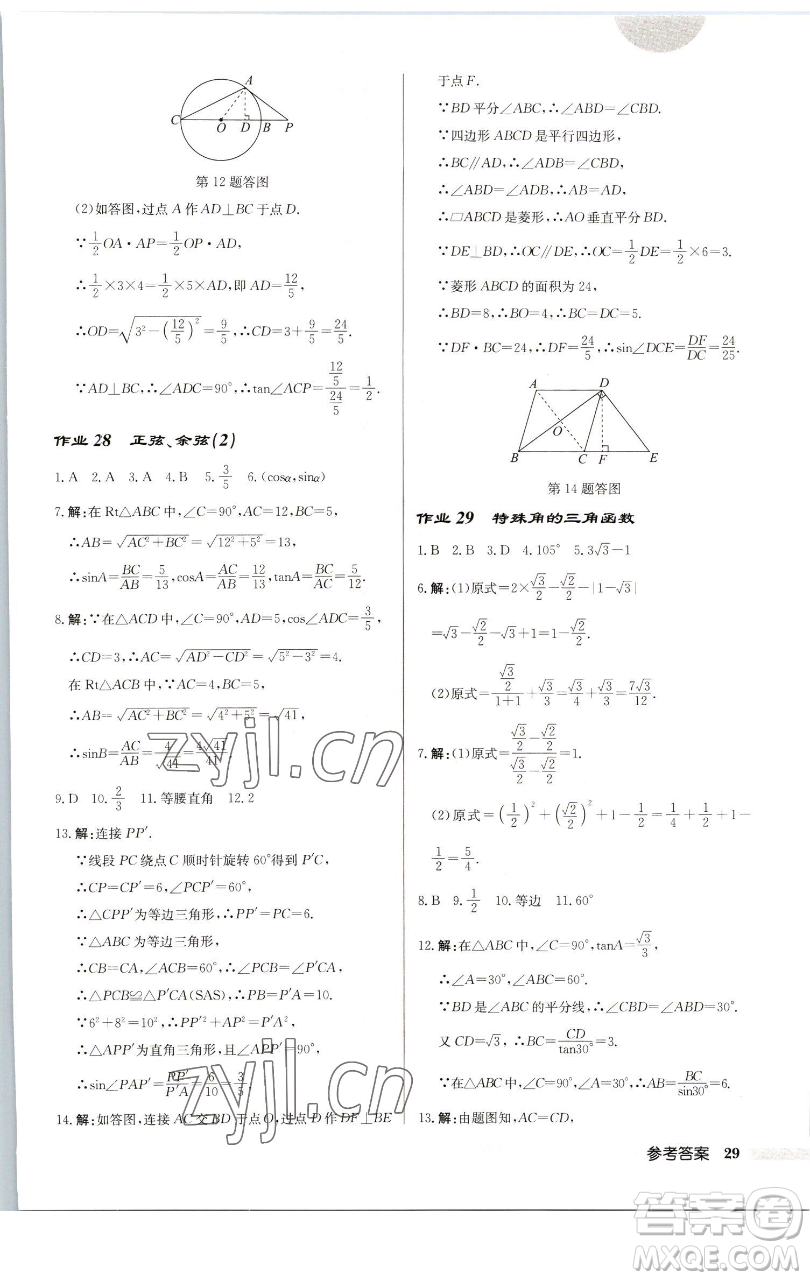 A
C
O
D
B
P
第12题答图
(2)如答图,过点A作AD⊥BC于点D.
∵1/2OA·AP=1/2OP·AD,
∴1/2×3×4=1/2×5×AD,即AD=12/5,
∴OD=√(3²-(12/5)²)=9/5,∴CD=3+9/5=24/5.
∵AD⊥BC,∴∠ADC=90°,∴tan∠ACP=(12/5)/(24/5)=1/2.
作业28 正弦、余弦(2)
1.A 2.A 3.A 4.B 5.3/5 6.(cosα,sinα)
7.解:在Rt△ABC中,∠C=90°,AC=12,BC=5,
∴AB=√(AC²+BC²)=√(12²+5²)=13,
∴sinA=BC/AB=5/13,cosA=AC/AB=12/13,tanA=BC/AC=5/12.
8.解:∵在△ACD中,∠C=90°,AD=5,cos∠ADC=3/5,
∴CD=3,∴AC=√(AD²-CD²)=√(5²-3²)=4.
在Rt△ACB中,∵AC=4,BC=5,
∴AB=√(AC²+BC²)=√(4²+5²)=√41,
∴sinB=AC/AB=4/√41=4√41/41.
9.D 10.2/3 11.等腰直角 12.2
13.解:连接PP′.
∵线段PC绕点C顺时针旋转60°得到P′C,
∴CP=CP′=6,∠PCP′=60°,
∴△CPP′为等边三角形,∴PP′=PC=6.
∵△ABC为等边三角形,
∴CB=CA,∠ACB=60°,∴∠PCB=∠P′CA,
∴△PCB≌△P′CA(SAS),∴PB=P′A=10.
∵6²+8²=10²,∴PP′²+AP²=P′A²,
∴△APP′为直角三角形,且∠APP′=90°,
∴sin∠PAP′=PP′/P′A=6/10=3/5.
14.解:如答图,连接AC交BD于点O,过点D作DF⊥BE
于点F.
∵BD平分∠ABC,∴∠ABD=∠DBC.
∵四边形ABCD是平行四边形,
∴BC∥AD,∴∠ADB=∠DBC,
∴∠ABD=∠ADB,∴AB=AD,
∴□ABCD是菱形,∴AO垂直平分BD.
∵DE⊥BD,∴OC∥DE,∴OC=1/2DE=1/2×6=3.
∵菱形ABCD的面积为24,
∴BD=8,∴BO=4,∴BC=DC=5.
∵DF·BC=24,∴DF=24/5,∴sin∠DCE=DF/DC=24/25.
A
D
O
B
C
F
E
第14题答图
作业29 特殊角的三角函数
1.B 2.B 3.D 4.105° 5.3√3-1
6.解:(1)原式=2×√3/2-√2/2-|1-√3|
=√3-√2/2-√3+1=1-√2/2.
(2)原式=(√3/2)/(1+1)+√3/3=√3/4+√3/3=7√3/12.
7.解:(1)原式=(√3/2-√2/2)/(√3/2-√2/2)=1.
(2)原式=(1/2)²+(√2/2)²+1/2×1=1/4+1/2+
1/2=5/4.
8.B 9.1/2 10.等边 11.60°
12.解:∵在△ABC中,∠C=90°,tanA=√3/3,
∴∠A=30°,∴∠ABC=60°.
∵BD是∠ABC的平分线,∴∠CBD=∠ABD=30°.
又∵CD=√3,∴BC=CD/tan30°=3.
∵在△ABC中,∠C=90°,∠A=30°,∴AB=BC/sin30°=6.
13.解:由题图知,AC=CD,
参考答案 29
zyjl.cn
zyjl.cn
答案圈
MXQE.COM